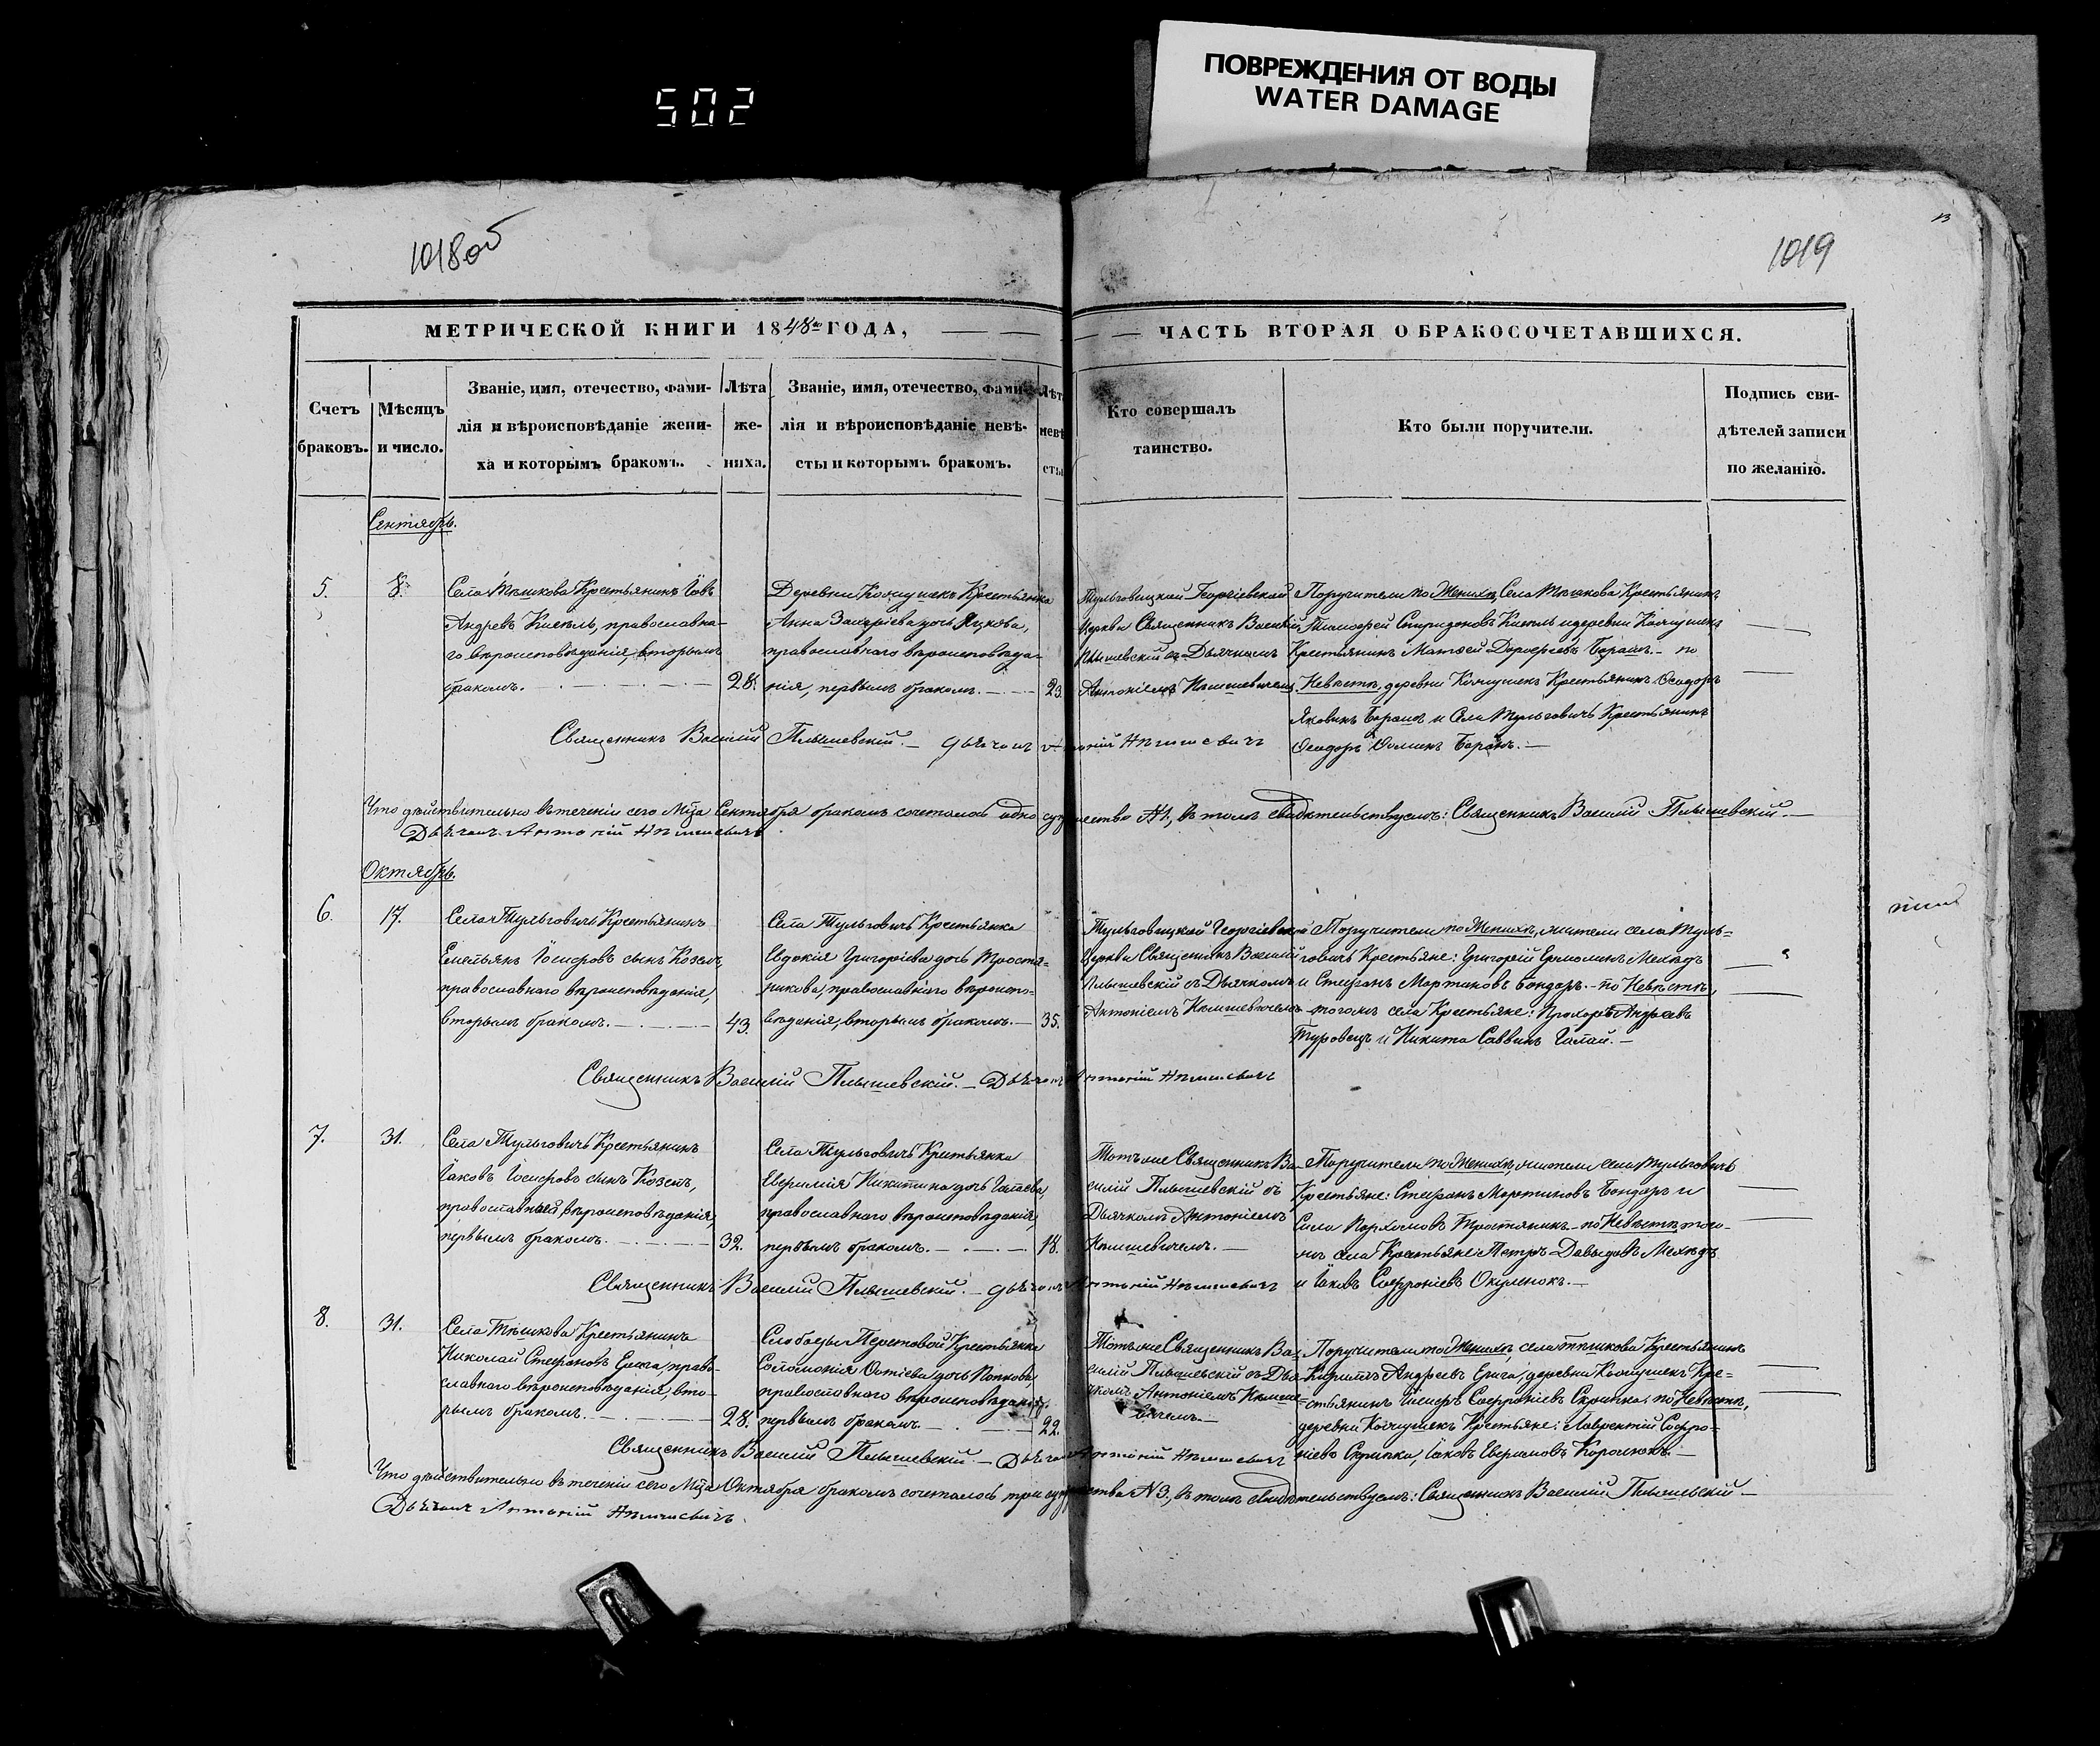 502
ПОВРЕЖДЕНИЯ ОТ ВОДЫ
WATER DAMAGE
1018об
1019
13
МЕТРИЧЕСКОЙ КНИГИ 1848го ГОДА,
ЧАСТЬ ВТОРАЯ О БРАКОСОЧЕТАВШИХСЯ.
Счетъ
браковъ.
Мѣсяцъ
и число.
Званіе, имя, отечество, фами-
лія и вѣроисповѣданіе жени-
ха и которымъ бракомъ.
Лѣта
же-
ниха.
Званіе, имя, отечество, фами-
лія и вѣроисповѣданіе невѣ-
сты и которымъ бракомъ.
Лѣта
невѣ
сты
Кто совершалъ
таинство.
Кто были поручители.
Подпись сви-
дѣтелей записи
по желанію.
Сентябрь.
5.
8.
Села Тѣшкова Крестьянинъ Іовъ
Андреевъ Кисель, православна-
го вѣроисповѣданія, вторымъ
бракомъ.
28.
Деревни Крестьянка
Анна Захаріева дочь Яцкова,
православнаго вѣроисповѣда-
нія, первымъ бракомъ.
23.
Тульговицкой Георгіевской
Церкви Священникъ Василій
Плышевскій съ Дьячкомъ
Антоніемъ
Поручители по Женихѣ, Села Тѣшкова Крестьянинъ
Тимофей Спиридоновъ Кисель и деревни
Крестьянинъ Матѳей Дорофеевъ Баранъ. - по
Невѣстѣ, деревни Крестьянинъ Ѳеодоръ
Яковинъ Баранъ и Села Тульговичъ Крестьянинъ
Ѳеодоръ Ѳоминъ Баранъ.
Священникъ Василій Плышевскій. - дьячокъ Антоній
Что дѣйствительно въ теченіи сего Мѣца Сентября бракомъ сочеталось одно супружество №1, въ томъ свидѣтельствуемъ: Священникъ Василій Плышевскій.
Дьячокъ Антоній
Октябрь.
6.
17.
Села Тульговичъ Крестьянинъ
Емельянъ Іосифовъ сынъ Козелъ,
православнаго вѣроисповѣданія,
вторымъ бракомъ.
43.
Села Тульговичъ Крестьянка
Евдокія Григоріева дочь Тростя-
никова, православнаго вѣроиспо-
вѣданія, вторымъ бракомъ.
35.
Тульговицкой Георгіевской
Церкви Священникъ Василій
Плышевскій съ Дьячкомъ
Антоніемъ
Поручители по Женихѣ, жители села Туль-
говичъ Крестьяне: Григорій Ермолинъ Мехедъ
и Стефанъ Мартиновъ Бондарь. - по Невѣстѣ,
тогожъ села Крестьяне: Прохоръ Андреевъ
Туровецъ и Никита Саввинъ Гапай.
Священникъ Василій Плышевскій. - Дьячокъ Антоній
7.
31.
Села Тульговичъ Крестьянинъ
Іаковъ Іосифовъ сынъ Козелъ,
православнаго вѣроисповѣданія,
первымъ бракомъ.
32.
Села Тульговичъ Крестьянка
Евфимія Никитина дочь Гапаева
православнаго вѣроисповѣданія,
первымъ бракомъ.
18.
Тотъже Священникъ Ва-
силій Плышевскій съ
Дьячкомъ Антоніемъ
Поручители по Женихѣ, жители села Тульговичъ
Крестьяне: Стефанъ Мартиновъ Бондарь и
Сила Пархомовъ Тростяникъ - по Невѣстѣ того-
жъ села Крестьяне: Петръ Давыдовъ Мехедъ
и Іаковъ Софроніевъ Окуленокъ.
Священникъ Василій Плышевскій. - дьячокъ Антоній
8.
31.
Села Тѣшкова Крестьянинъ
Николай Стефановъ Ермга, право-
славнаго вѣроисповѣданія, вто-
рымъ бракомъ.
28.
Слободы Крестьянка
Соломонія дочь Попкова
православнаго вѣроисповѣданія,
первымъ бракомъ.
22.
Тотъже Священникъ Ва-
силій Плышевскій съ Дья-
чкомъ Антоніемъ
Поручители по Женихѣ, села Тѣшкова Крестьянинъ
Андреевъ деревни Кре-
стьянинъ Іосифъ Софроніевъ Скрипка, по Невѣстѣ,
деревни Крестьяне: Лаврентій Софро-
ніевъ Скрипка, Іаковъ
Священникъ Василій Плышевскій. - Дьячокъ Антоній
Что дѣйствительно въ теченіи сего Мѣца Октября бракомъ сочеталось три супружества №3, въ томъ свидѣтельствуемъ: Священникъ Василій Плышевскій
Дьячокъ Антоній